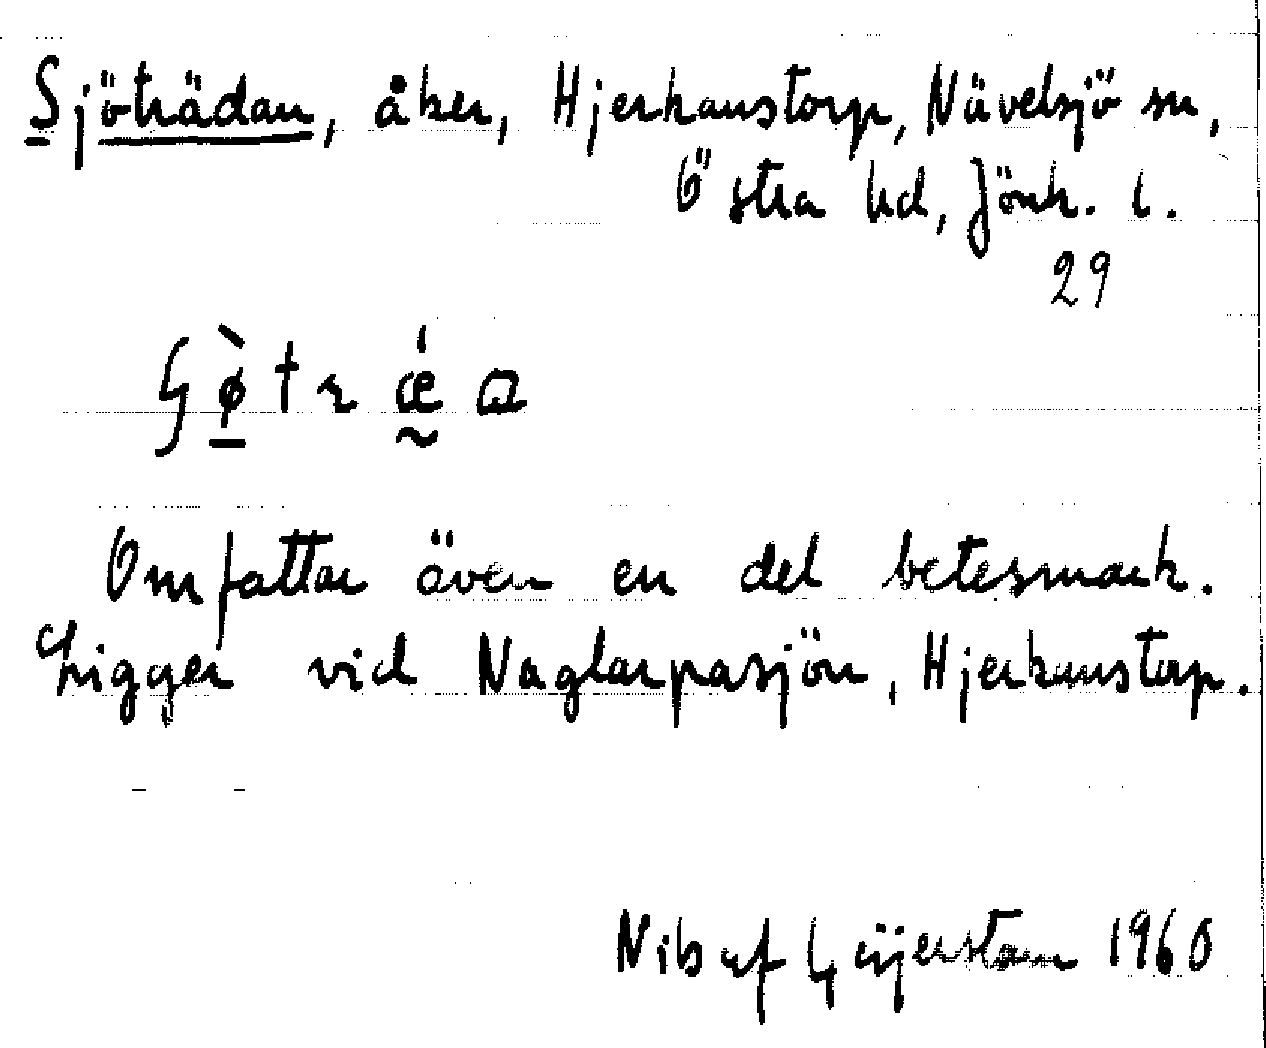 Sjöträdan, åker, Hjerkanstorp, Nävelsjö sn,
Östra hd, Jönk. l.
29
Omfattar även en del betesmark.
Ligger vid Naglarpasjön, Hjerkanstorp.
Nils af Geijerstam 1960